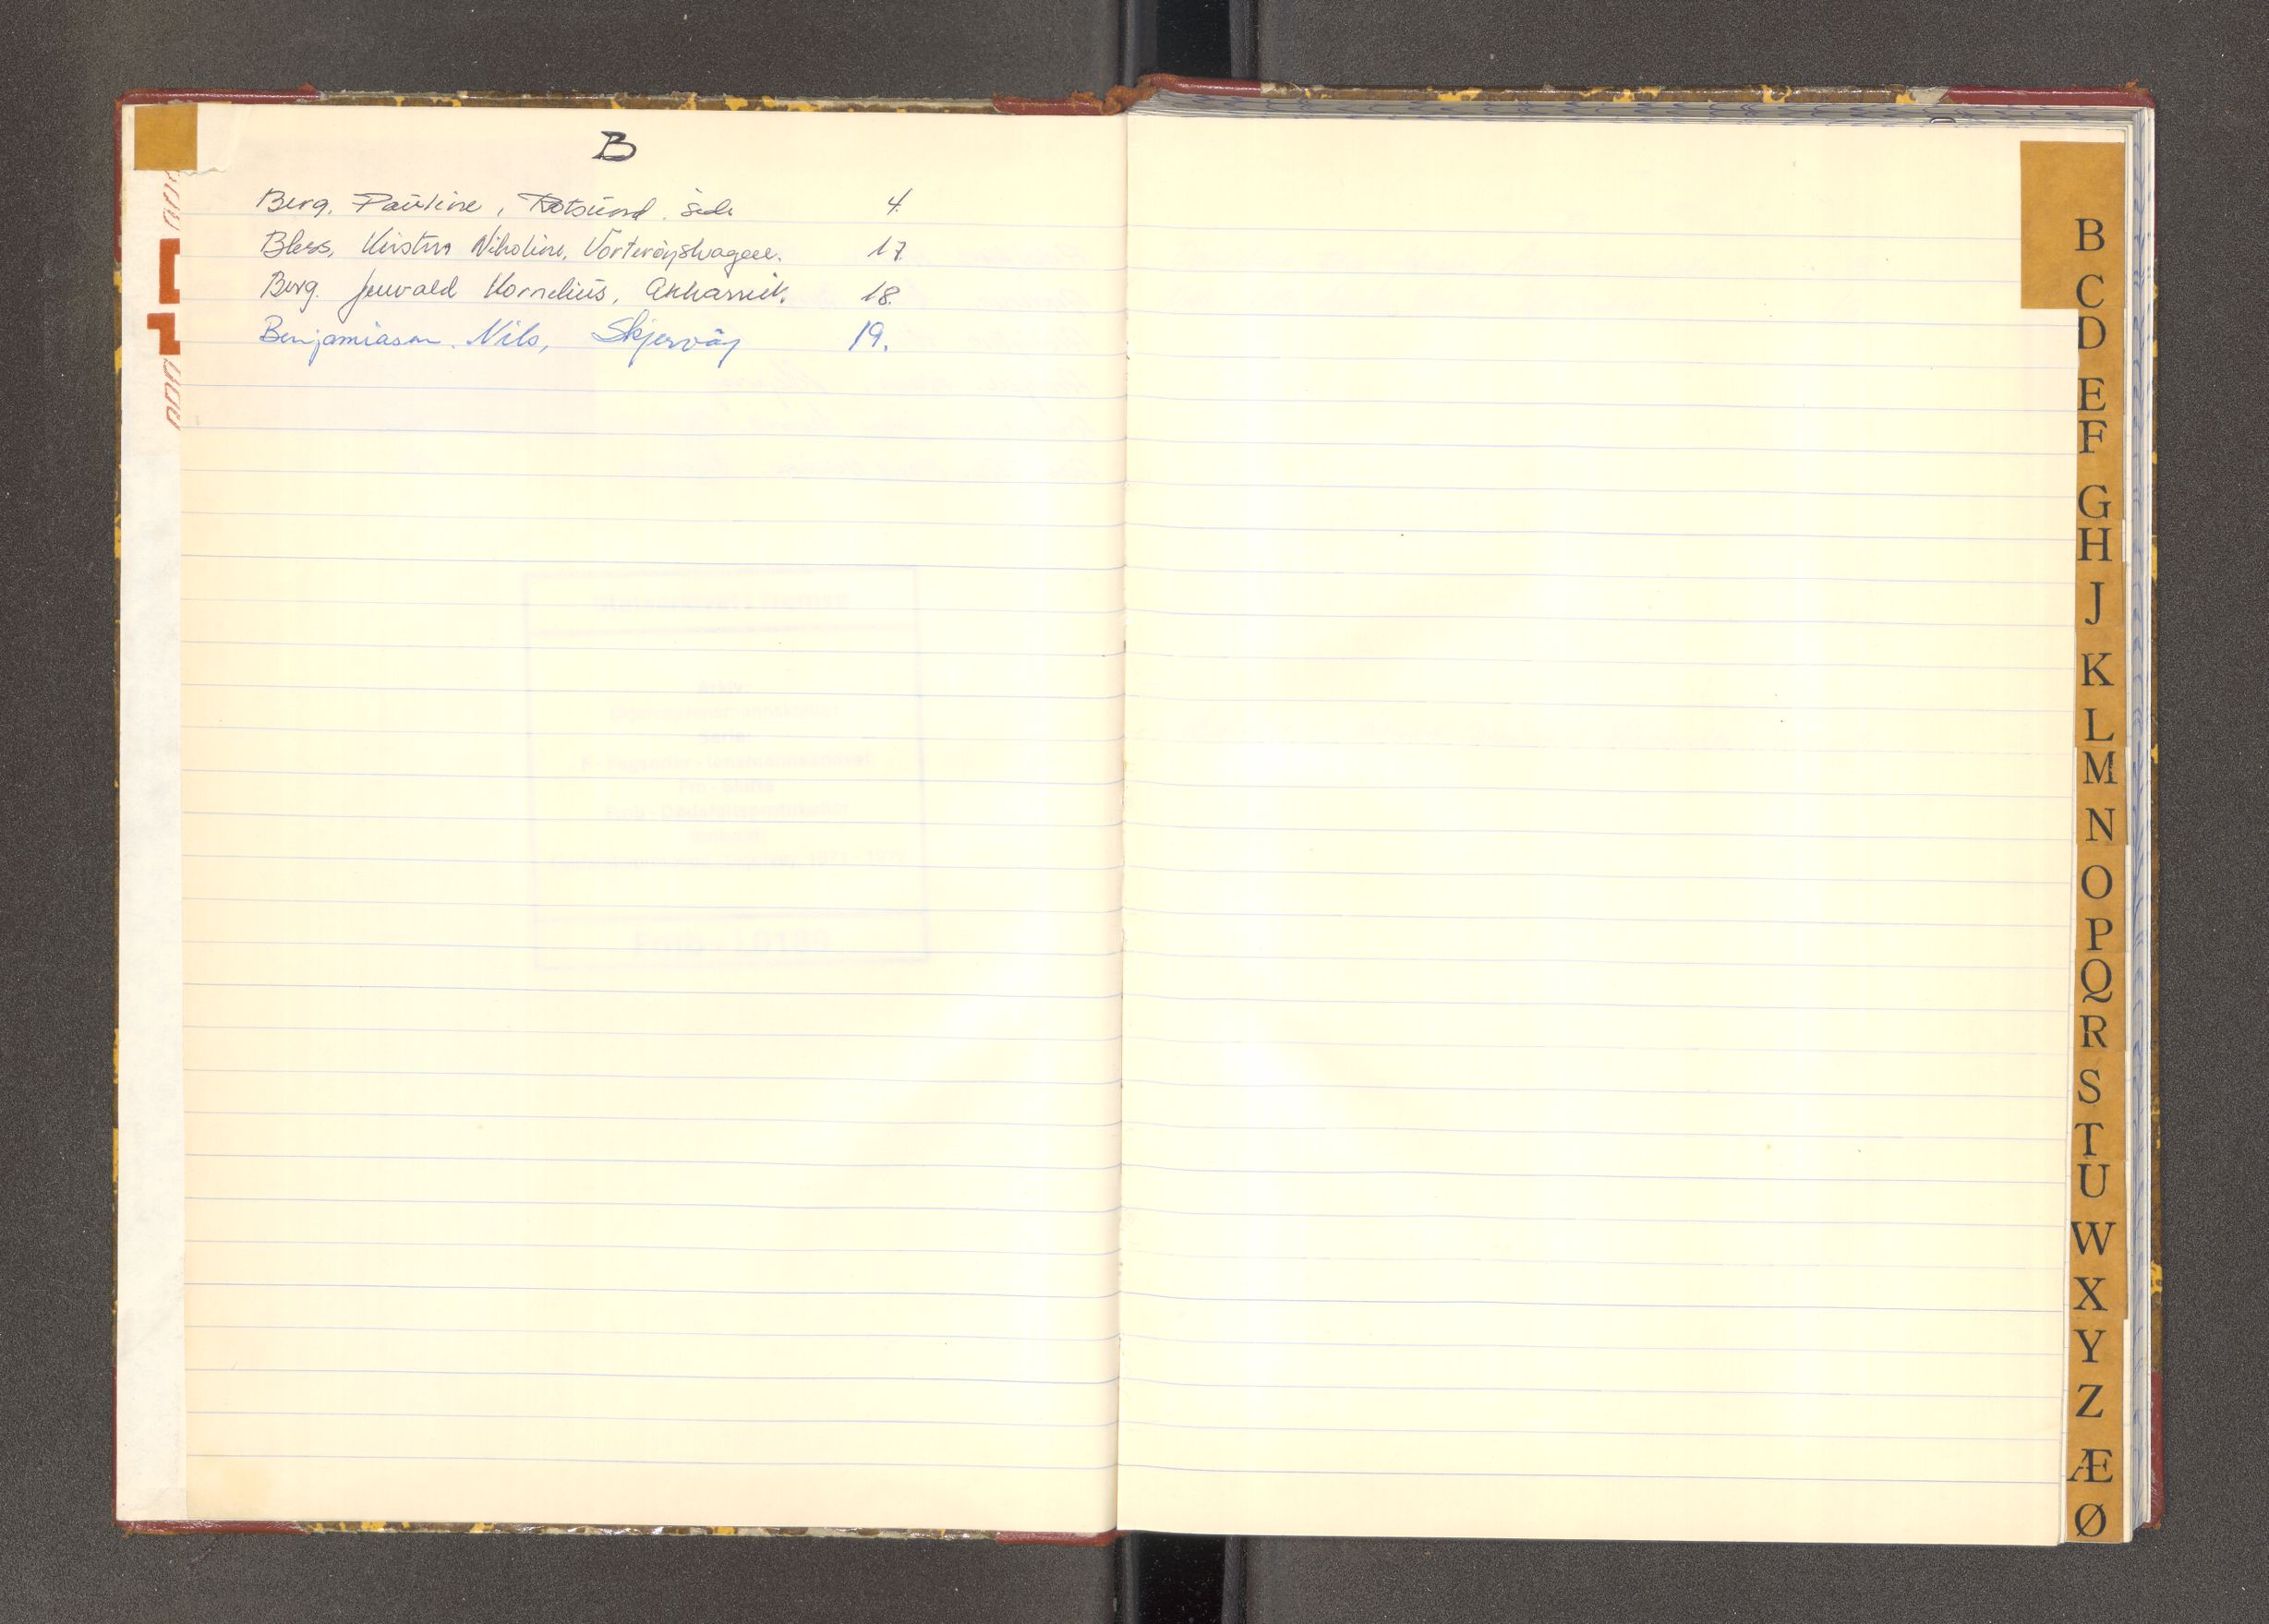 B
Berg, Pauline, Rotsund. side 4.
Bless, Kirstine Nikoline, Vorterøyskagen. 17.
Berg. Jenvald Kornelius, Akkarvik. 18.
Benjaminsen. Nils, Skjervøy 19.
B
C
D
E
F
G
H
J
K
L
M
N
O
P
Q
R
S
T
U
W
X
Y
Z
Æ
Ø